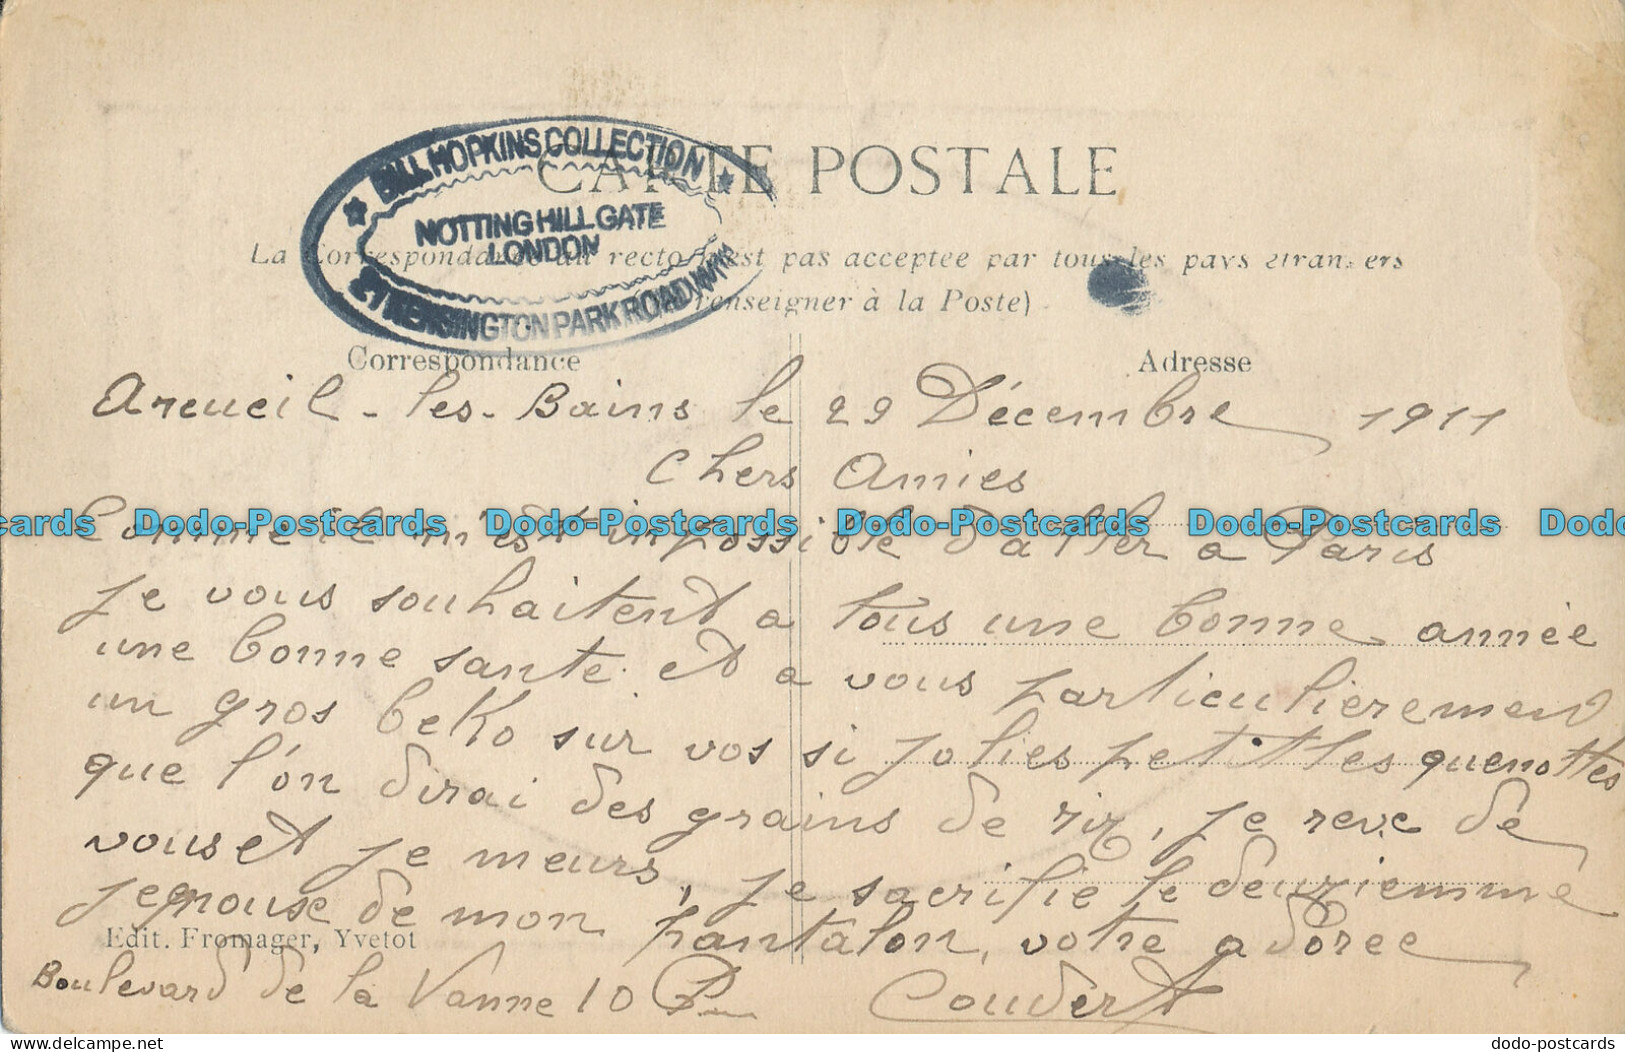 CARTE POSTALE
BILL HOPKINS COLLECTION
NOTTING HILL GATE
LONDON
KENSINGTON PARK ROAD W11
La Correspondance au recto n'est pas acceptée par tous les pays étrangers
renseigner à la Poste)
Correspondance
Adresse
Arcueil-les-Bains le 29 Décembre 1911
Chers Amies
Comme il m'est impossible d'aller a Paris
Je vous souhaitent a tous une bonne année
une bonne sante et a vous particulierement
un gros beko sur vos si jolies petittes quenottes
que l'on dirai des grains de riz, je reve de
vous et je meurs, je sacrifie le deuziemme
de mon pantalon, votre adoree
Edit. Fromager, Yvetot
Boulevard de la Vanne 10 Coudert
Dodo-Postcards Dodo-Postcards Dodo-Postcards Dodo-Postcards
dodo-postcards